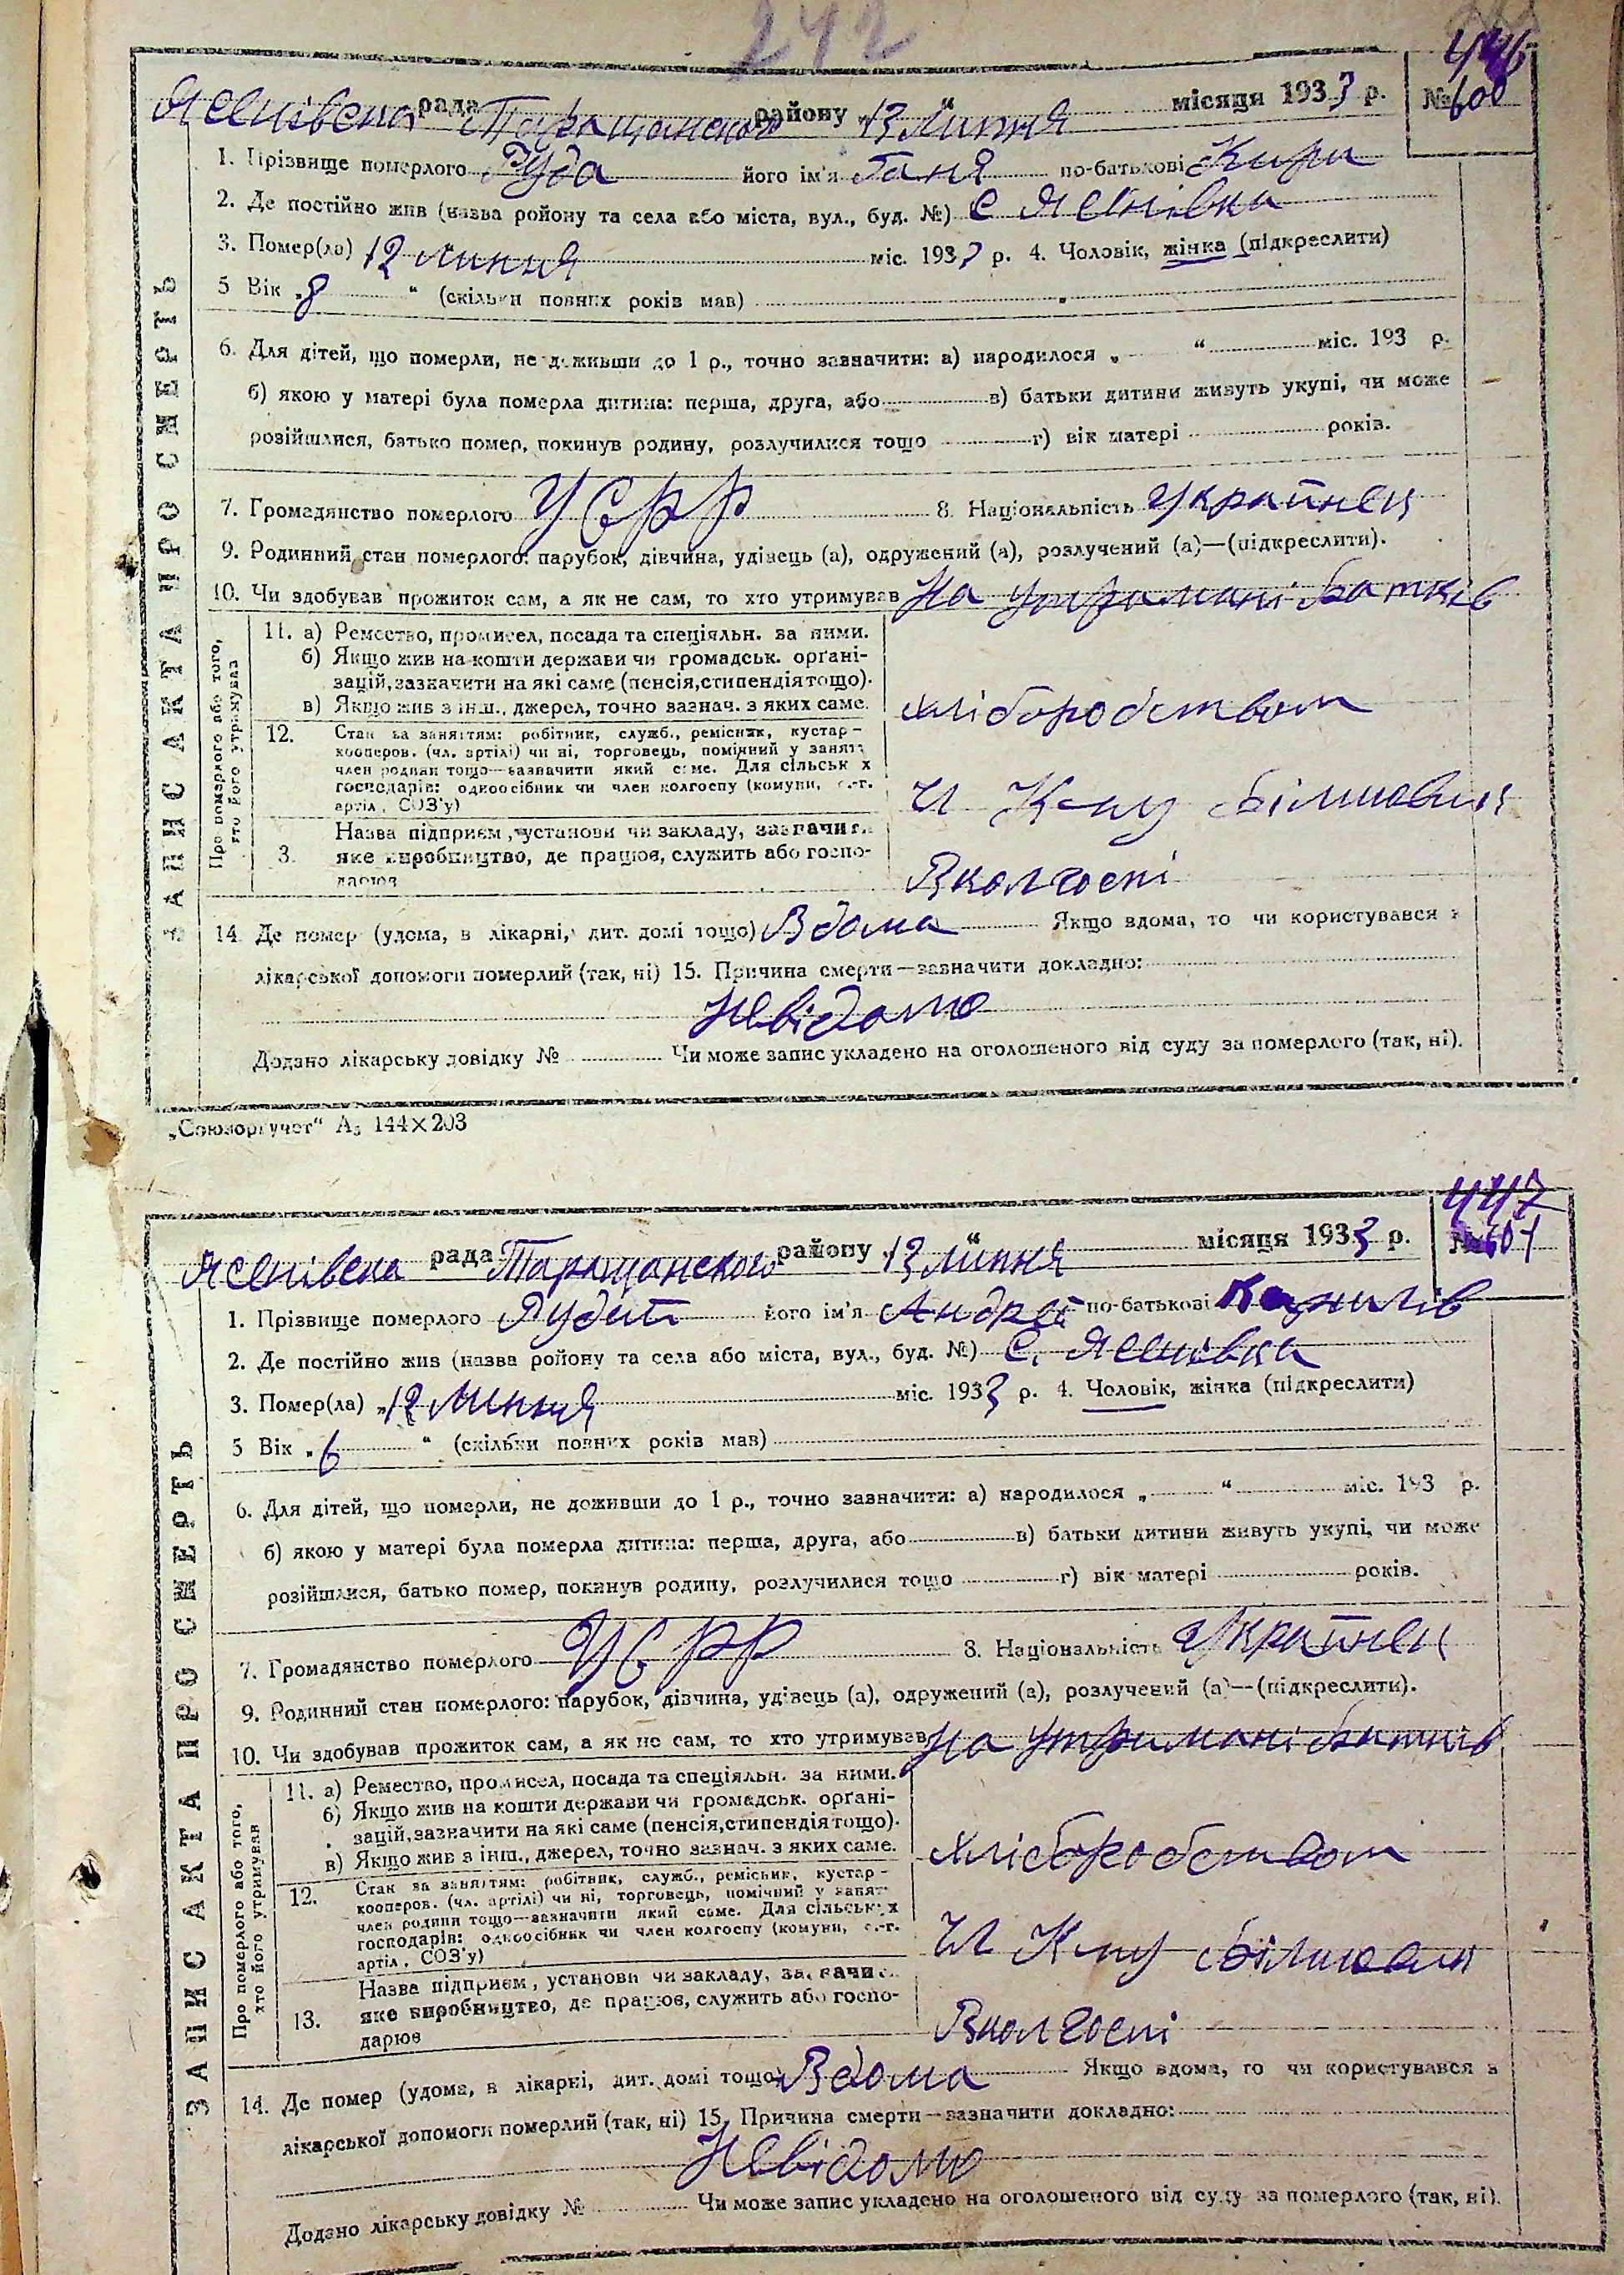 242
446
Ясенівська рада Таращанского району „13 Липня місяця 1933 р. № 600
1. Прізвище померлого Руда його ім'я Ганя по-батькові Кири
2. Де постійно жив (назва ройону та села або міста, вул., буд. №) С Ясенівка
3. Помер(ла) 12 липня міс. 1933 р. 4. Чоловік, жінка (підкреслити)
5 Вік „8 “ (скільки повних років мав)
6. Для дітей, що померли, не доживши до 1 р., точно зазначити: а) народилося „ “ міс. 193 р.
б) якою у матері була померла дитина: перша, друга, або в) батьки дитини живуть укупі, чи може
розійшлися, батько помер, покинув родину, розлучилися тощо г) вік матері років.
7. Громадянство померлого УСРР 8. Національність Українец
9. Родинний стан померлого: парубок, дівчина, удівець (а), одружений (а), розлучений (а)—(підкреслити).
10. Чи здобував прожиток сам, а як не сам, то хто утримував На утримані батьків
ЗАПИС АКТА ПРО СМЕРТЬ
Про померлого або того,
хто його утримував
11. а) Ремество, промисел, посада та спеціяльн. за ними.
б) Якщо жив на кошти держави чи громадськ. органі-
зацій, зазначити на які саме (пенсія, стипендія тощо).
в) Якщо жив з інш., джерел, точно зазнач. з яких саме.
хліборобством
12. Стан за заняттям: робітник, служб., ремісник, кустар-
кооперов. (чл. артілі) чи ні, торговець, помічний у занятт
член родини тощо—зазначити який саме. Для сільськ х
господарів: одноосібник чи член колгоспу (комуни, с.-г.
артіл, СОЗ'у)
Чл К-пу більшовик
3. Назва підприєм, установи чи закладу, зазначити
яке виробництво, де працює, служить або госпо-
дарює
Вколгоспі
14. Де помер (удома, в лікарні, дит. домі тощо) Вдома Якщо вдома, то чи користувався з
лікарської допомоги померлий (так, ні) 15. Причина смерти—зазначити докладно:
Невідомо
Додано лікарську довідку № Чи може запис укладено на оголошеного від суду за померлого (так, ні).
„Союзоргучет“ А5 144×203
447
Ясенівська рада Таращанского району „13 липня “ місяця 1933 р. № 601
1. Прізвище померлого Рудий його ім'я Андрей по-батькові
2. Де постійно жив (назва ройону та села або міста, вул., буд. №) С. Ясенівка
3. Помер(ла) „12 липня міс. 1933 р. 4. Чоловік, жінка (підкреслити)
5 Вік „6 “ (скільки повних років мав)
6. Для дітей, що померли, не доживши до 1 р., точно зазначити: а) народилося „ “ міс. 193 р.
б) якою у матері була померла дитина: перша, друга, або в) батьки дитини живуть укупі, чи може
розійшлися, батько помер, покинув родину, розлучилися тощо г) вік матері років.
7. Громадянство померлого УСРР 8. Національність Українец
9. Родинний стан померлого: парубок, дівчина, удівець (а), одружений (а), розлучений (а)—(підкреслити).
10. Чи здобував прожиток сам, а як не сам, то хто утримував На утримані батьків
ЗАПИС АКТА ПРО СМЕРТЬ
Про померлого або того,
хто його утримував
11. а) Ремество, промисел, посада та спеціяльн. за ними.
б) Якщо жив на кошти держави чи громадськ. органі-
зацій, зазначити на які саме (пенсія, стипендія тощо).
в) Якщо жив з інш., джерел, точно зазнач. з яких саме.
хліборобством
12. Стан за заняттям: робітник, служб., ремісник, кустар-
кооперов. (чл. артілі) чи ні, торговець, помічний у занят
член родини тощо—зазначити який саме. Для сільських
господарів: одноосібник чи член колгоспу (комуни, с.-г.
артіл, СОЗ'у)
Чл К-пу більшовик
13. Назва підприєм, установи чи закладу, зазначи
яке виробництво, де працює, служить або госпо-
дарює
Вколгоспі
14. Де помер (удома, в лікарні, дит. домі тощо) Вдома Якщо вдома, то чи користувався з
лікарської допомоги померлий (так, ні) 15. Причина смерти—зазначити докладно:
Невідомо
Додано лікарську довідку № Чи може запис укладено на оголошеного від суду за померлого (так, ні).